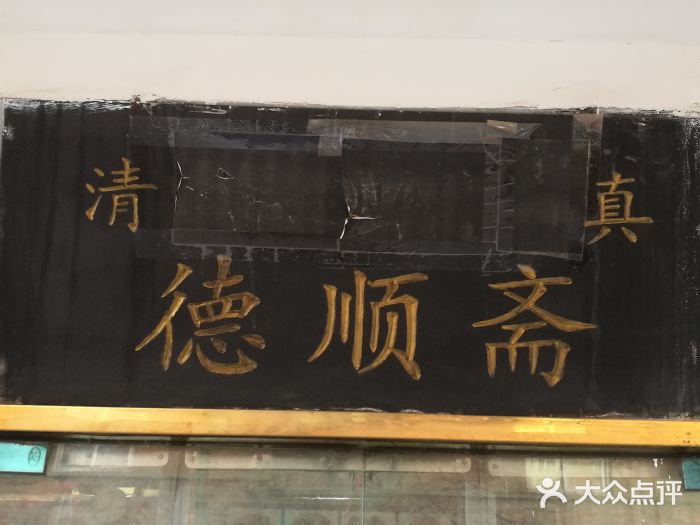 清 真
德顺斋
大众点评